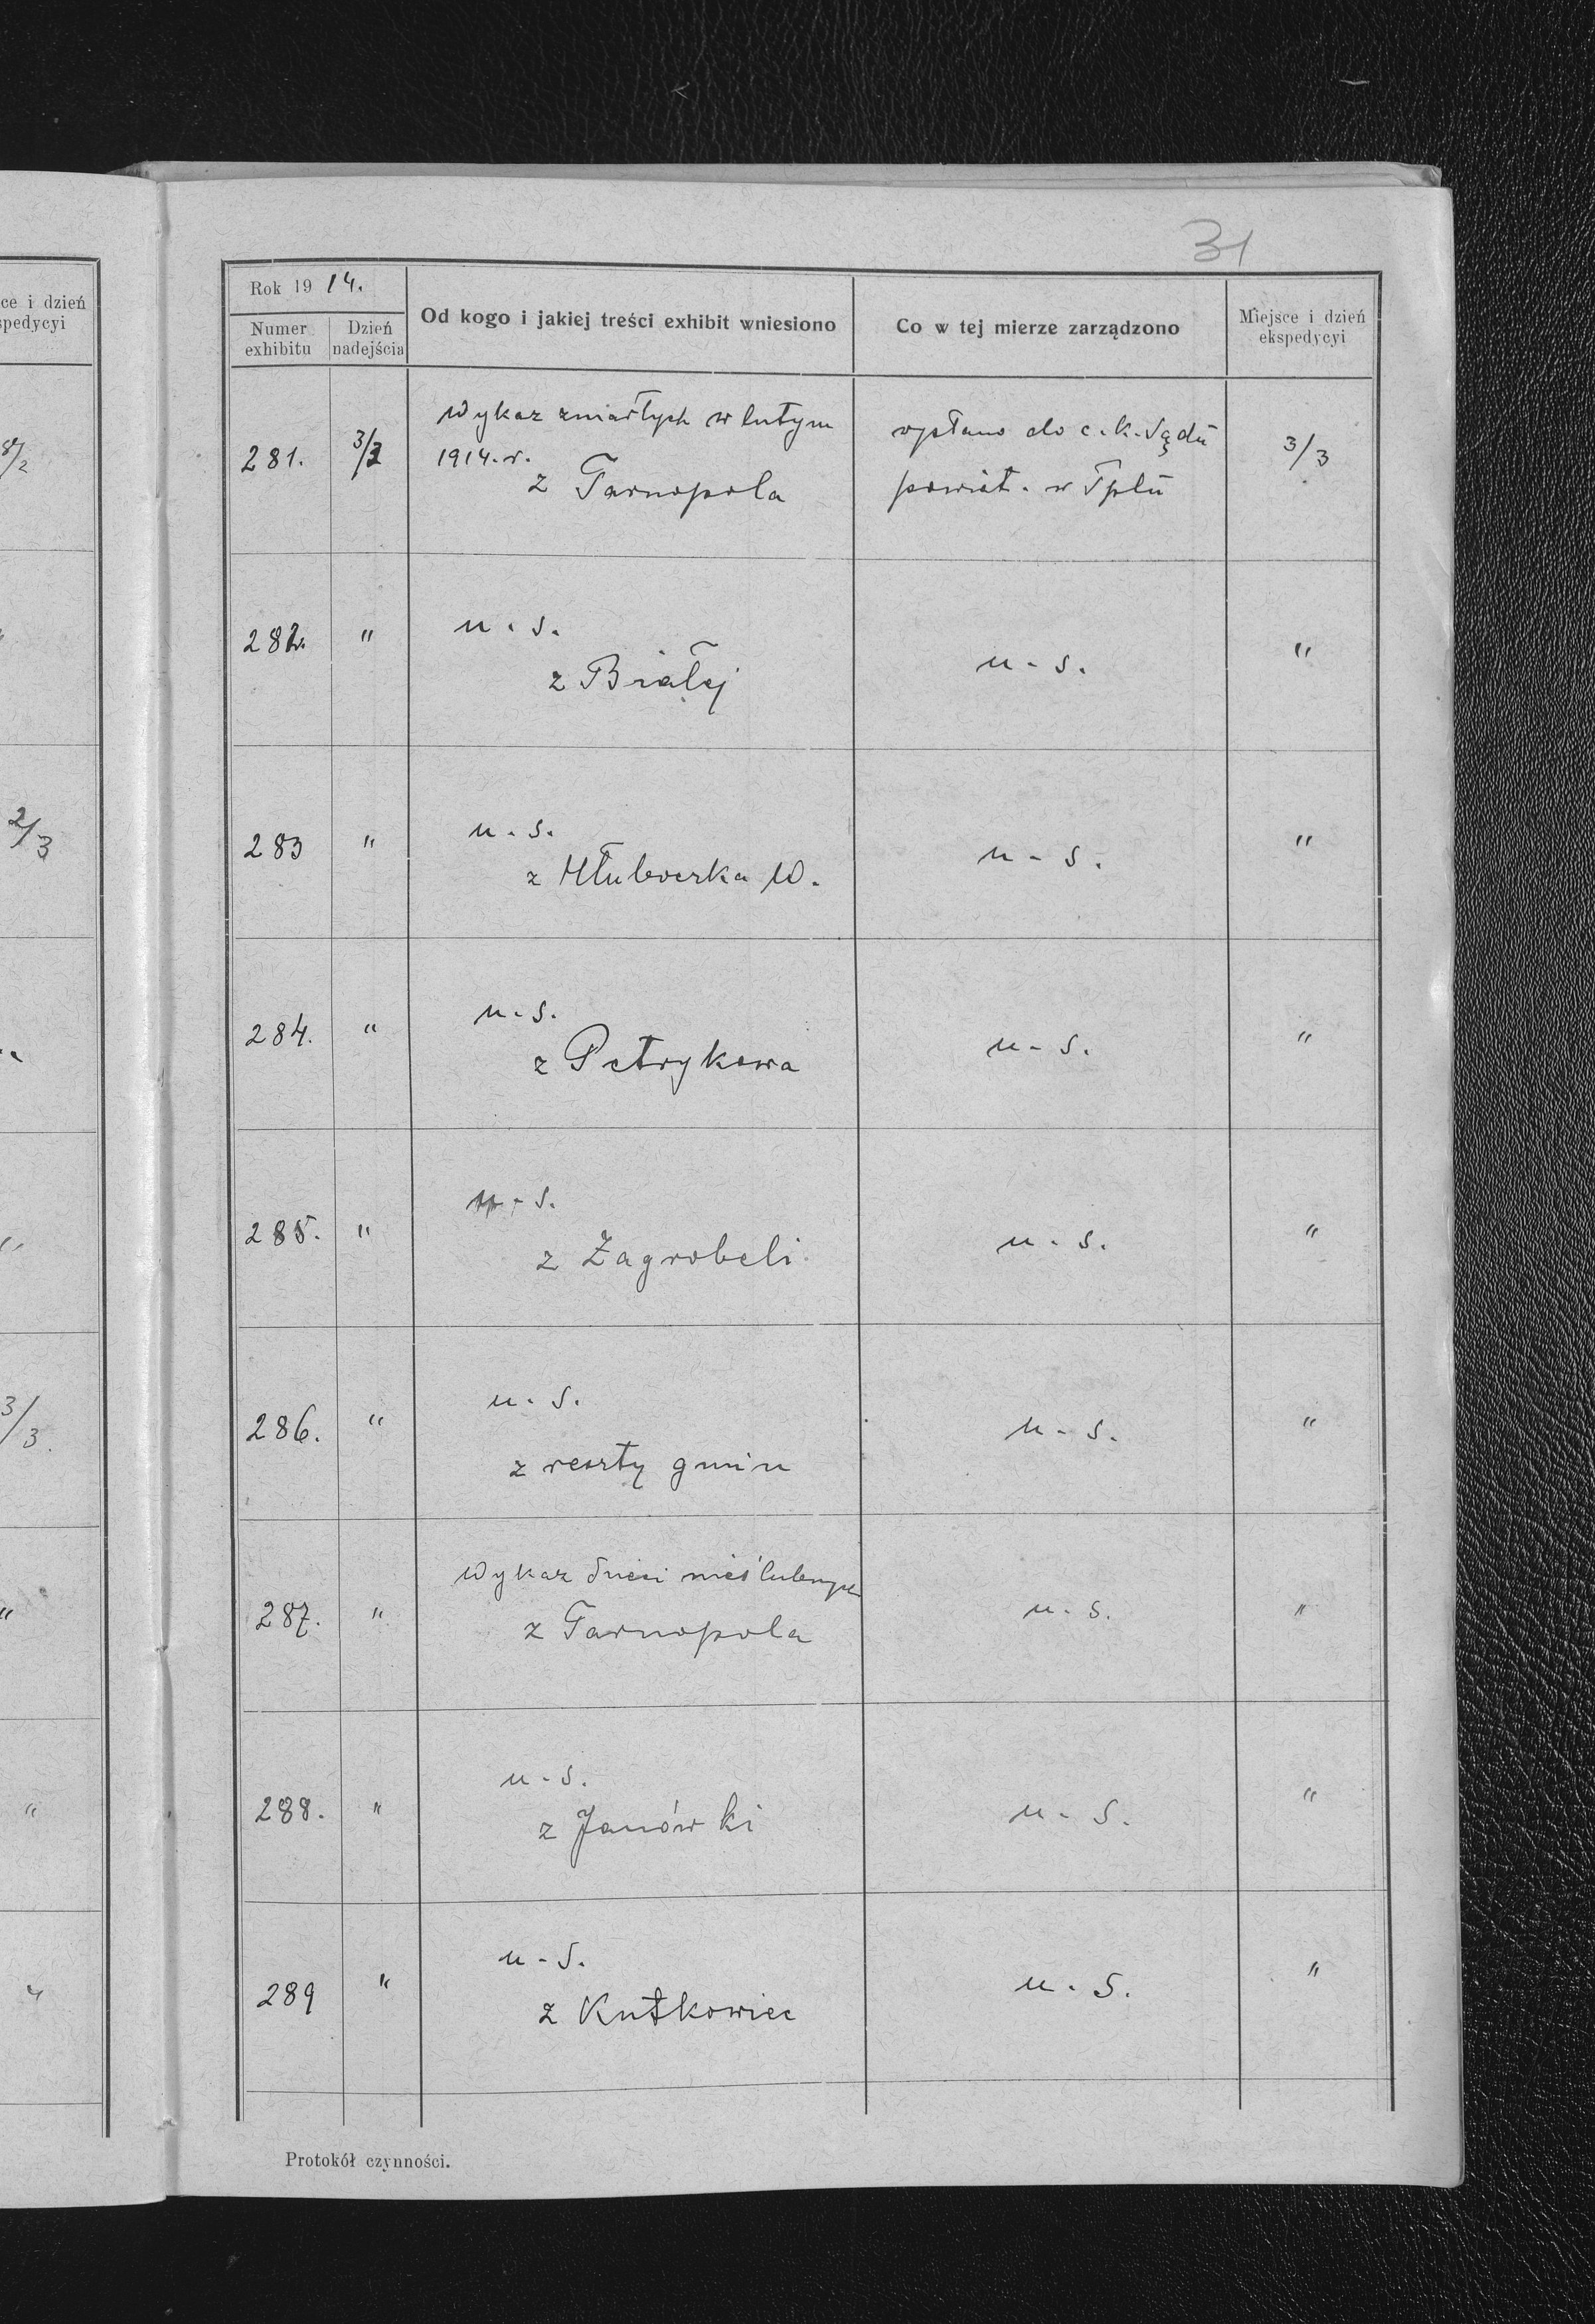 31
ce i dzień
spedycyi
8/2
"
2/3
"
3/3.
"
"
"
Rok 1914.
Numer exhibitu
Dzień nadejścia
Od kogo i jakiej treści exhibit wniesiono
Co w tej mierze zarządzono
Miejsce i dzień ekspedycyi
281. 3/3 Wykaz zmarłych w lutym
1914. r.
z Tarnopola
wysłano do c. k. Sądu
powiat. w Tplu
3/3
282. "
u. s.
z Białej
u - s.
"
283 "
u. s.
z Hłuboczka W.
u - s.
"
284. "
u. s.
z Petrykowa
u - s.
"
285. "
u - s.
z Zagrobeli
u. s.
"
286. "
u. s.
z reszty gmin
u - s.
"
287. "
Wykaz dzieci nieślubnych
z Tarnopola
u. s.
"
288. "
u - s.
z Janówki
u - s.
"
289 "
u - s.
z Kutkowiec
u. s.
"
Protokół czynności.